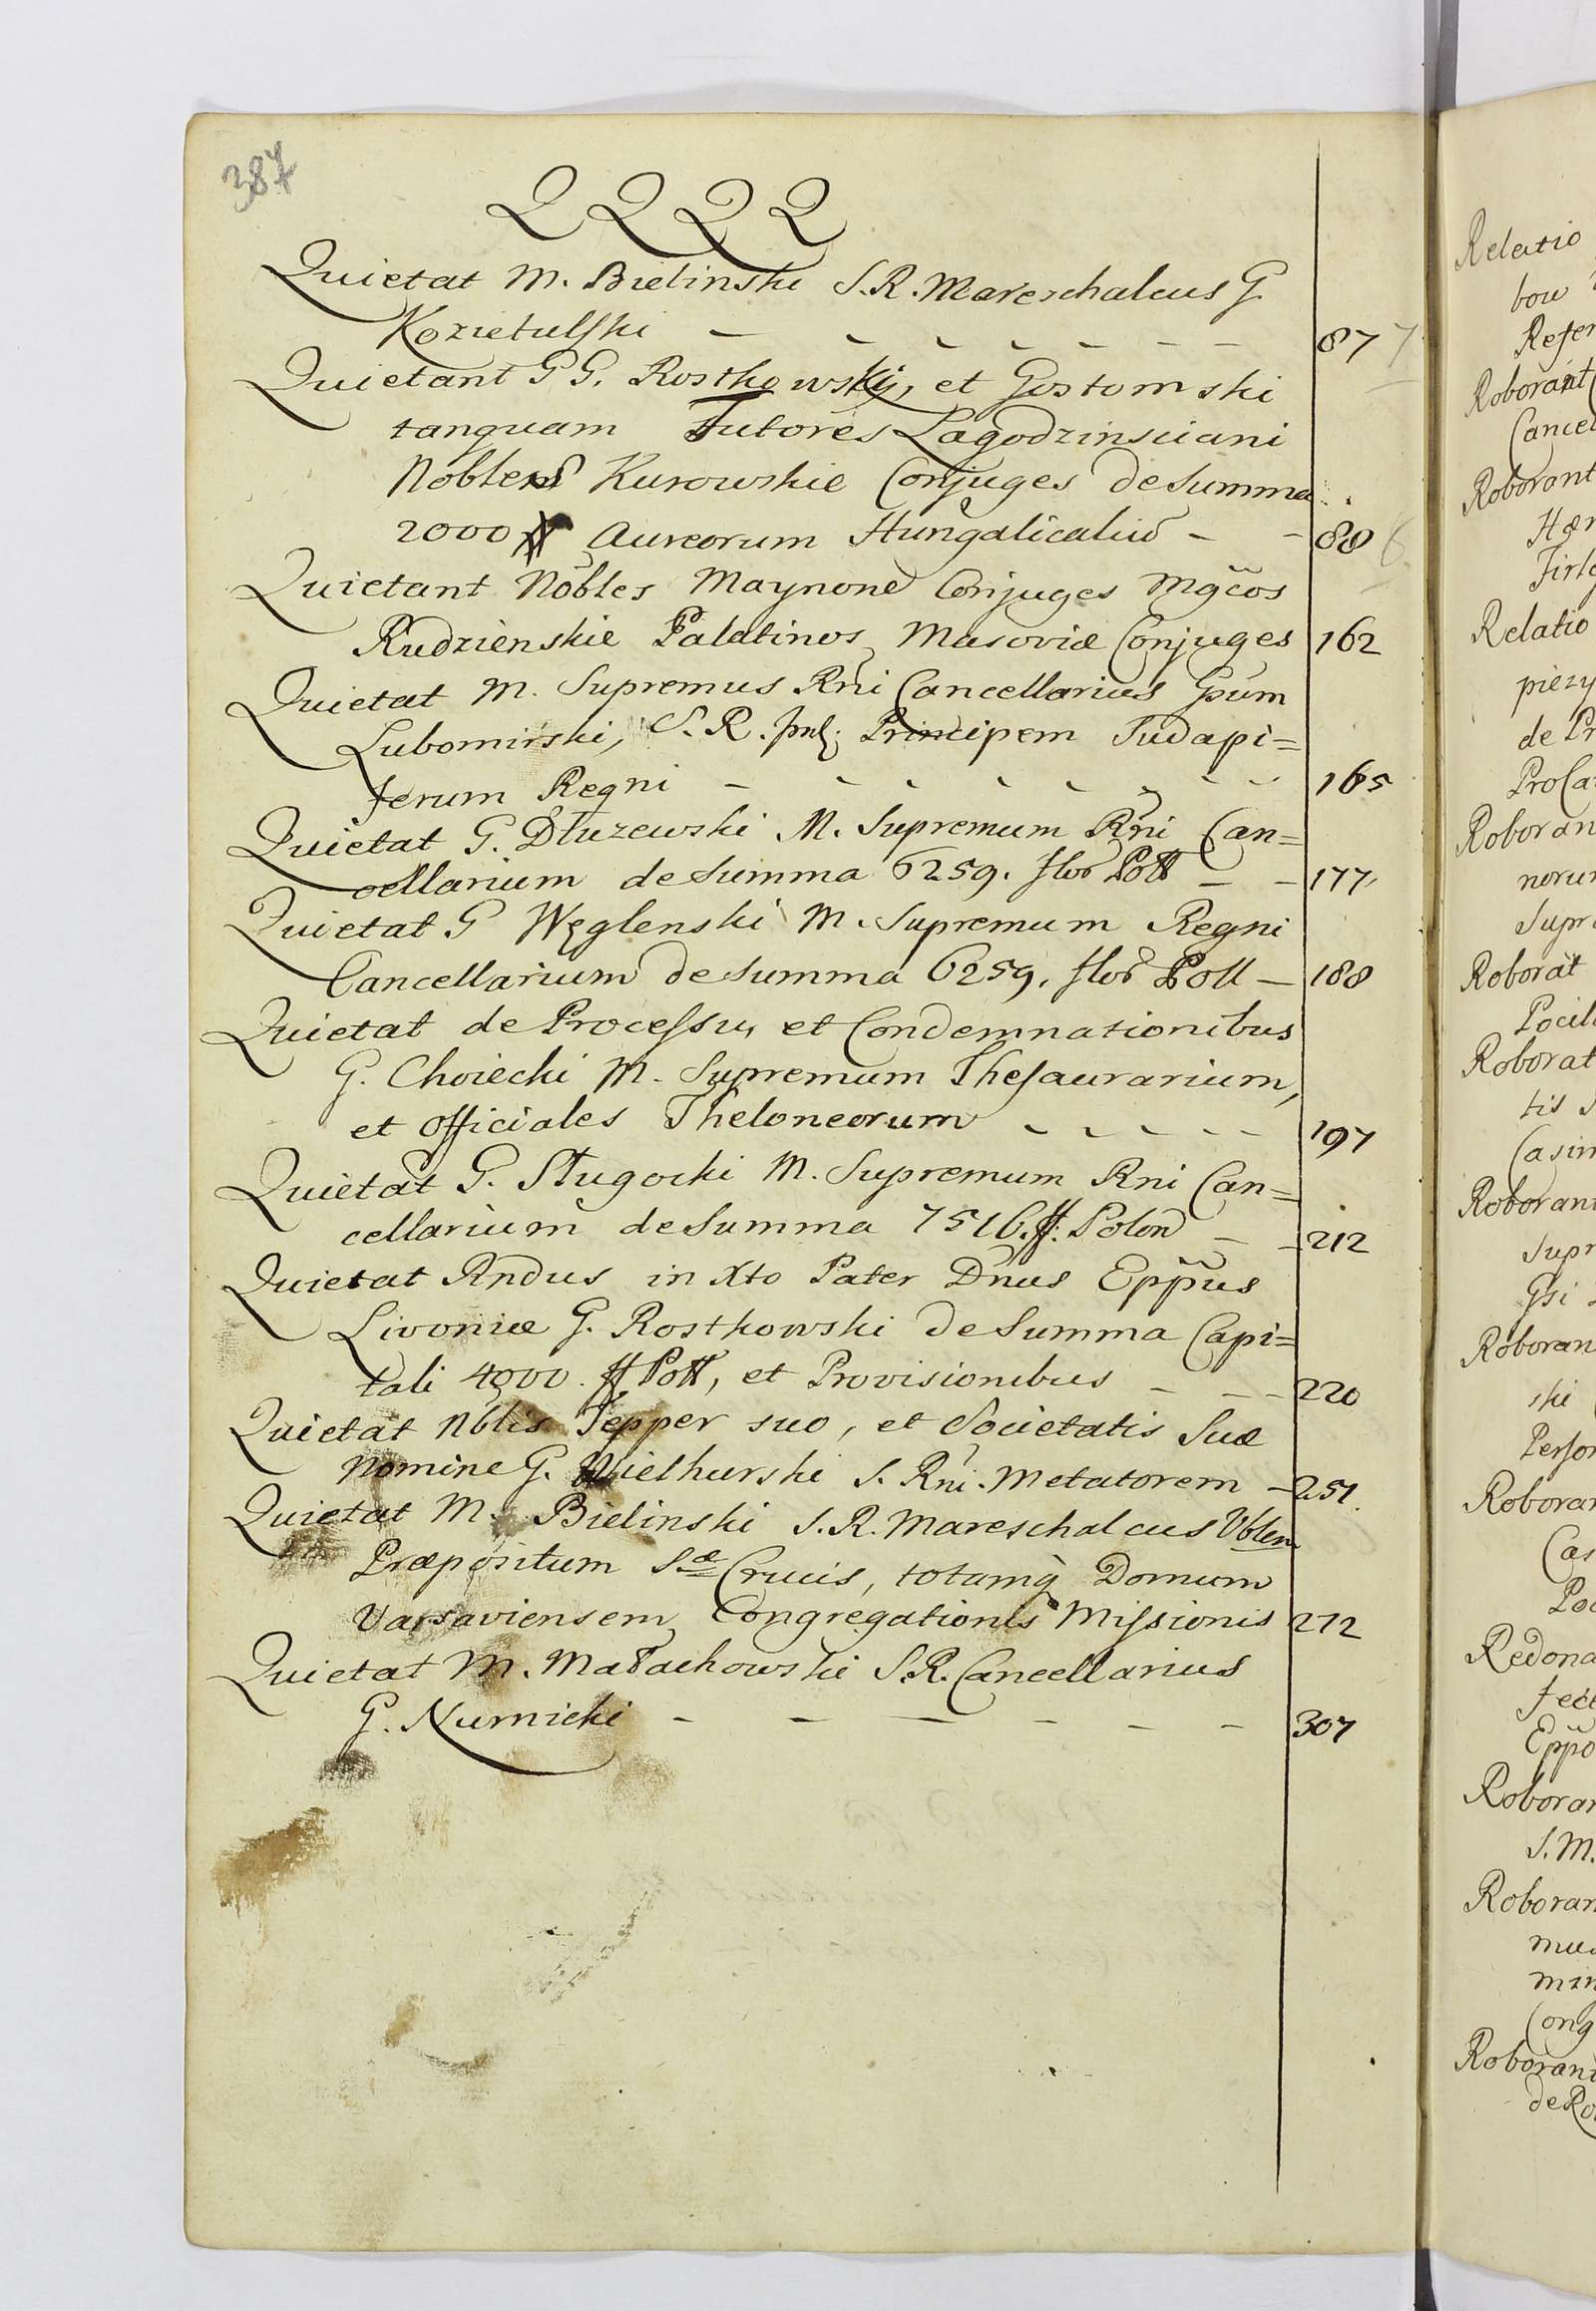 387
Q Q Q Q
Quietat M. Bielinski S. R. Mareschalcus G.
Kozietulski - - - - - - - 87 7
Quietant G G. Rostkowskij, et Gostomski
tanquam Tutores Łagodzinsciani
Nobles Kurowskie Conjuges de Summa
2000 # Aureorum Hungalicaliū - - 88
Quietant Nobles Maynone Conjuges Mgcos
Rudzienskie Palatinos Masoviæ Conjuges 162
Quietat M. Supremus Rni Cancellarius Gsum
Lubomirski, S. R. Principem Sudapi=
ferum Regni - - - - - - - - 165
Quietat G. Dłuzewski M. Supremum Rni Can=
cellarium de Summa 6259. flor Poll - - 177
Quietat G Węglenski M. Supremum Regni
Cancellarium de Summa 6259. flor Poll - 188
Quietat de Processu, et Condemnationibus
G. Choiecki M. Supremum Thesaurarium,
et Officiales Theloneorum - - - - - 197
Quietat G. Sługocki M. Supremum Rni Can=
cellarium de Summa 7516. ff: Polon - - 212
Quietat Rndus in Xto Pater Dnus Eppus
Livoniæ G. Rostkowski de Summa Capi=
tali 4000. ff Poll, et Provisionibus - - - 220
Quietat Nblis Tepper suo, et Societatis Suæ
Nomine G. Wielhurski S. Rni. Metatorem - 251.
Quietat M. Bielinski S. R. Mareschalcus Vblem
Præpositum Sæ Crucis, totamq Domum
Varsaviensem Congregationis Missionis 272
Quietat M. Małachowski S. R. Cancellarius
G. Numicki - - - - - - 307
Relatio
bow
Refer
Roborant
Cancel
Roborant
Hær
Firle
Relatio
piezy
de Pr
ProCa
Roboran
noru
Supr
Roborat
Pocil
Roborat
tis
Casim
Roboran
Supr
Gsi
Roboran
ski
Person
Roboran
Cas
Poc
Redona
fect
Eppo
Roboran
S. M.
Roboran
mus
min
Cong
Roborant
de Ro